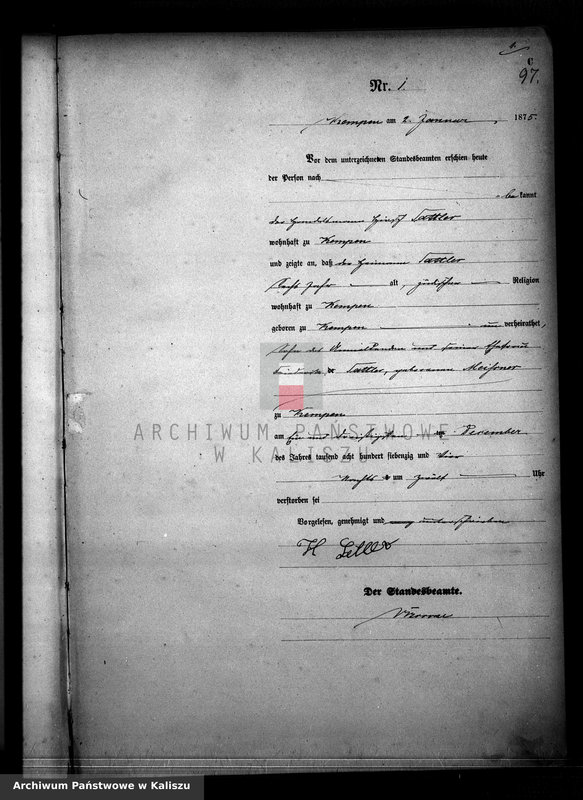 C
97.
Nr. 1
Kempen am 2. Januar 1875.
Vor dem unterzeichneten Standesbeamten erschien heute
der Person nach
bekannt
der Handelsmann Hirsch Sattler
wohnhaft zu Kempen
und zeigte an, daß der Hermann Sattler
Sechs Jahr alt, jüdischer Religion
wohnhaft zu Kempen
geboren zu Kempen unverheirathet,
Sohn des und seiner Ehefrau
Sattler, geborenen Meissner
zu Kempen
am ein und dreißigsten December
des Jahres tausend acht hundert siebenzig und vier
Nachts um zwölf Uhr
verstorben sei
Vorgelesen, genehmigt und unterschrieben
H
Der Standesbeamte.
ARCHIWUM PAŃSTWOWE
W KALISZU
Archiwum Państwowe w Kaliszu